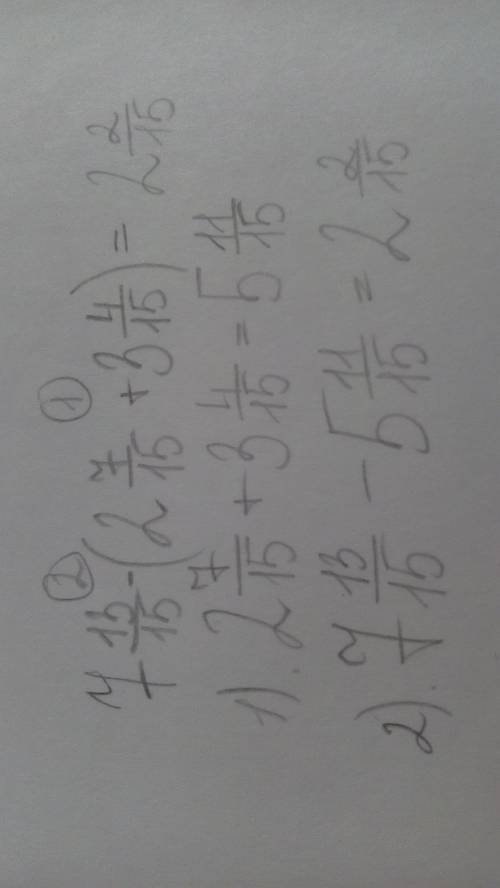 ② ①
7 13/15 - (2 7/15 + 3 4/15) = 2 2/15
1). 2 7/15 + 3 4/15 = 5 11/15
2). 7 13/15 - 5 11/15 = 2 2/15